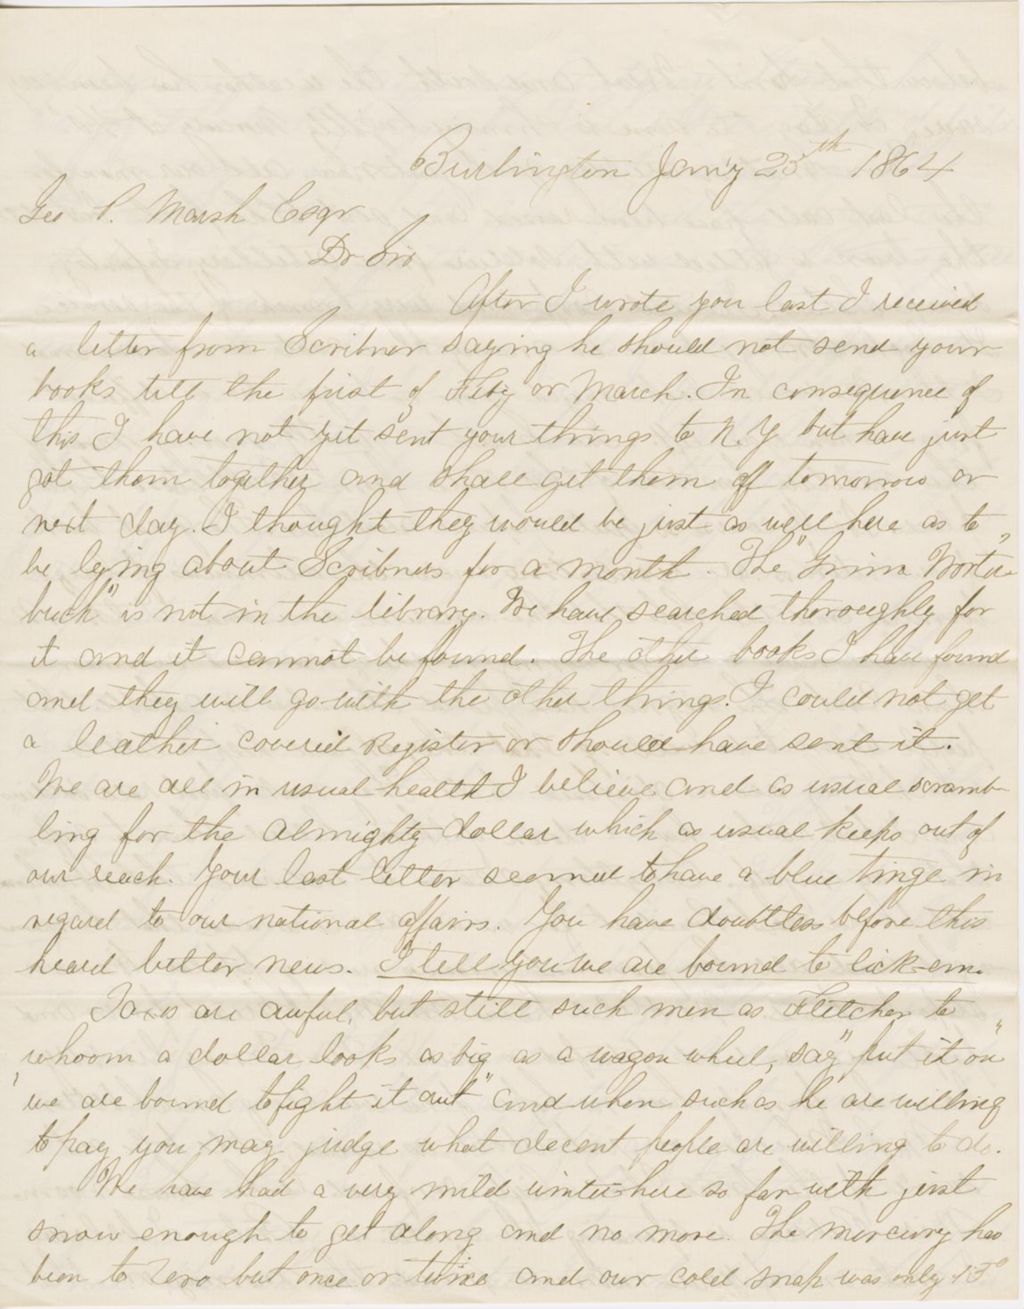 Burlington Jan'y 25th 1864
Geo P. Marsh Esqr
Dr Sir
After I wrote you last I received
a letter from Scribner saying he should not send your
books till the first of Feby or March. In consequence of
this I have not yet sent your things to N.Y but have just
got them together and shall get them off tomorrow or
next day. I thought they would be just as well here as to
be lying about Scribners for a month. The "Grimm Worter
buch" is not in the library. We have searched thoroughly for
it and it cannot be found. The other books I have found
and they will go with the other things. I could not get
a leather covered Register or should have sent it.
We are all in usual health I believe and as usual scramb-
ling for the almighty dollar which as usual keeps out of
our reach. Your last letter seemed to have a blue tinge in
regard to our national affairs. You have doubtless before this
heard better news. I tell you we are bound to lick-em.
Taxes are awful, but still such men as Fletcher to
whoom a dollar looks as big as a wagon wheel, say "put it on"
"we are bound to fight it out" and when such as he are willing
to pay you may judge what decent people are willing to do.
We have had a very mild winter here so far with just
snow enough to get along and no more. The mercury has
been to Zero but once or twice and our cold snap was only 13°